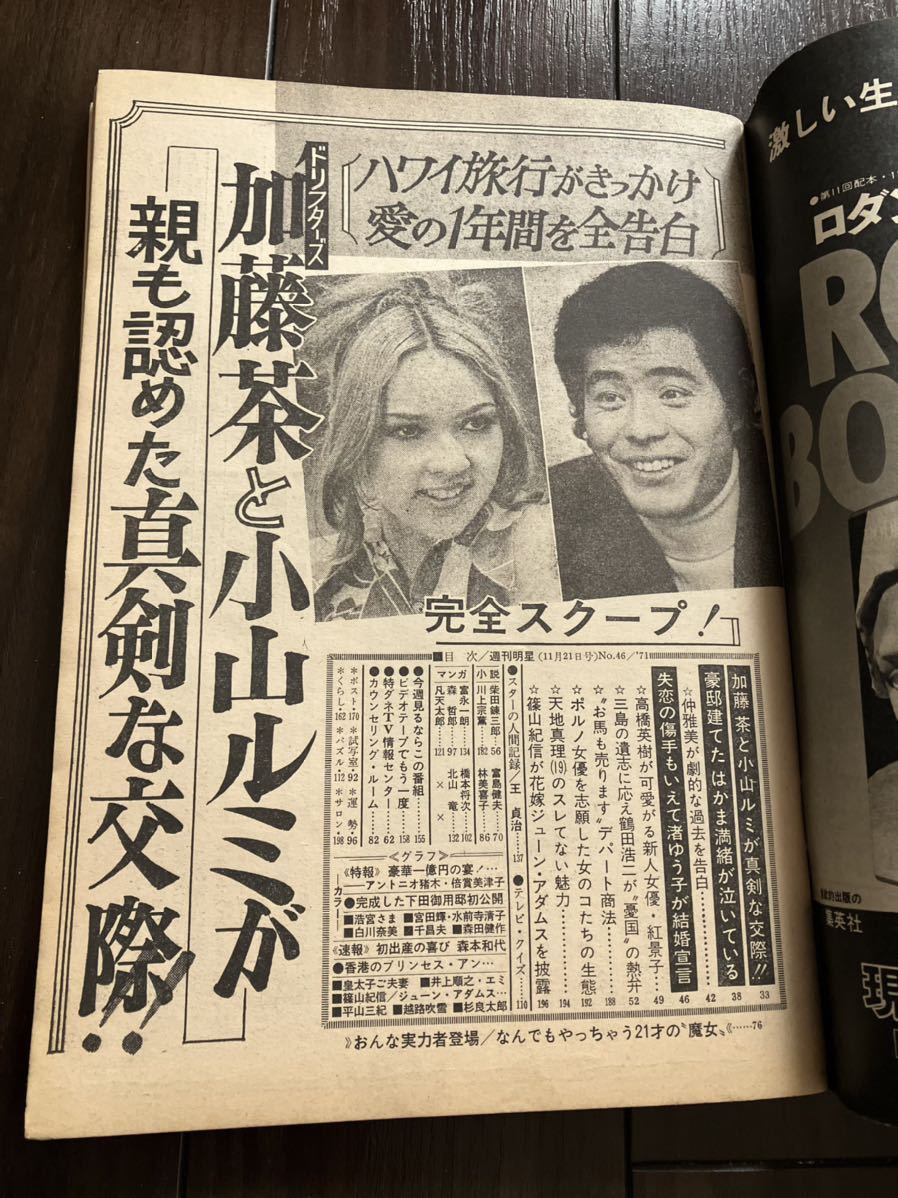 ハワイ旅行がきっかけ
愛の1年間を全告白
ドリフターズ
加藤茶と小山ルミが
親も認めた真剣な交際!!
完全スクープ!
■目次/週刊明星(11月21日号)No.46/'71
加藤茶と小山ルミが真剣な交際!! 33
豪邸建てたはかま満緒が泣いている 38
☆仲雅美が劇的な過去を告白 42
失恋の傷手もいえて渚ゆう子が結婚宣言 46
☆高橋英樹が可愛がる新人女優・紅景子 49
☆三島の遺志に応え鶴田浩二が“憂国”の熱弁 52
☆“お馬も売ります”デパート商法 188
☆ポルノ女優を志願した女のコたちの生態 192
☆天地真理(19)のスレてない魅力 194
☆篠山紀信が花嫁ジューン・アダムスを披露 196
●スターの人間記録/王貞治 137
●テレビ・クイズ 110
小説
柴田錬三郎 56
富島健夫 70
川上宗薫 182
林美喜子 86
マンガ
富永一朗 134
橋本将次 102
森哲郎 97
北山竜 132
凡天太郎 121
×
×
●今週見るならこの番組 155
●ビデオテープでもう一度 158
●特ダネTV情報センター 62
●カウンセリング・ルーム 82
*ポスト・170 *試写室・92 *運勢・96
*くらし・162 *パズル・112 *サロン・198
≪グラフ≫
カラー
《特報》豪華一億円の宴
アントニオ猪木・倍賞美津子
●完成した下田御用邸初公開
■浩宮さま ■宮田輝・水前寺清子
■白川奈美 ■千昌夫 ■森田健作
《速報》初出産の喜び 森本和代
●香港のプリンセス・アン…
■皇太子ご夫妻 ■井上順之・エミ
■篠山紀信/ジューン・アダムス…
■平山三紀 ■越路吹雪 ■杉良太郎
》おんな実力者登場/なんでもやっちゃう21才の“魔女”《……76
激しい生
●第11回配本・1
ロダン
RO
BO
集英社
現